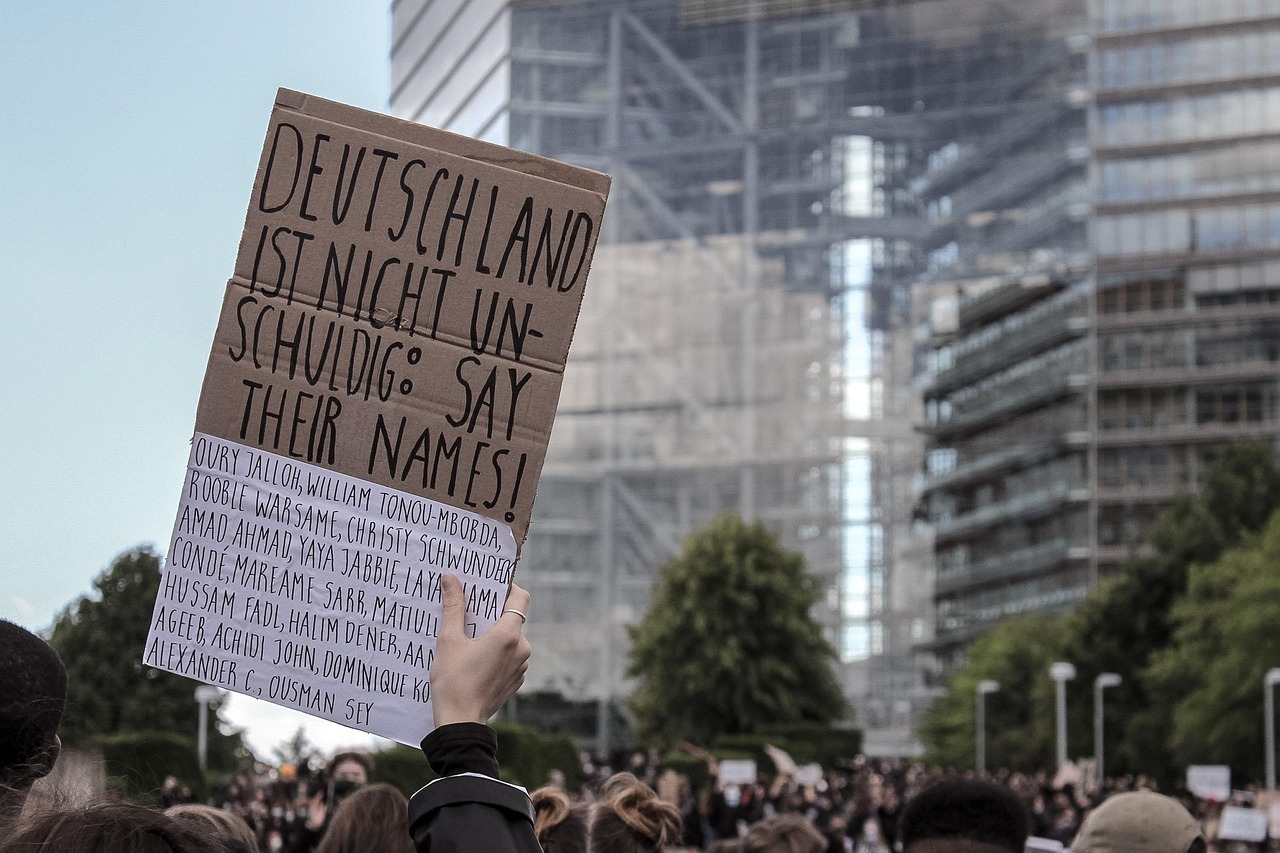 DEUTSCHLAND
IST NICHT UN-
SCHULDIG: SAY
THEIR NAMES!
OURY JALLOH, WILLIAM TONOU-MBOBDA,
ROOBLE WARSAME, CHRISTY SCHWUNDECK
AMAD AHMAD, YAYA JABBIE, LAYA
CONDE, MAREAME SARR,
HUSSAM FADL, HALIM DENER,
AGEEB, ACHIDI JOHN, DOMINIQUE
ALEXANDER C., OUSMAN SEY